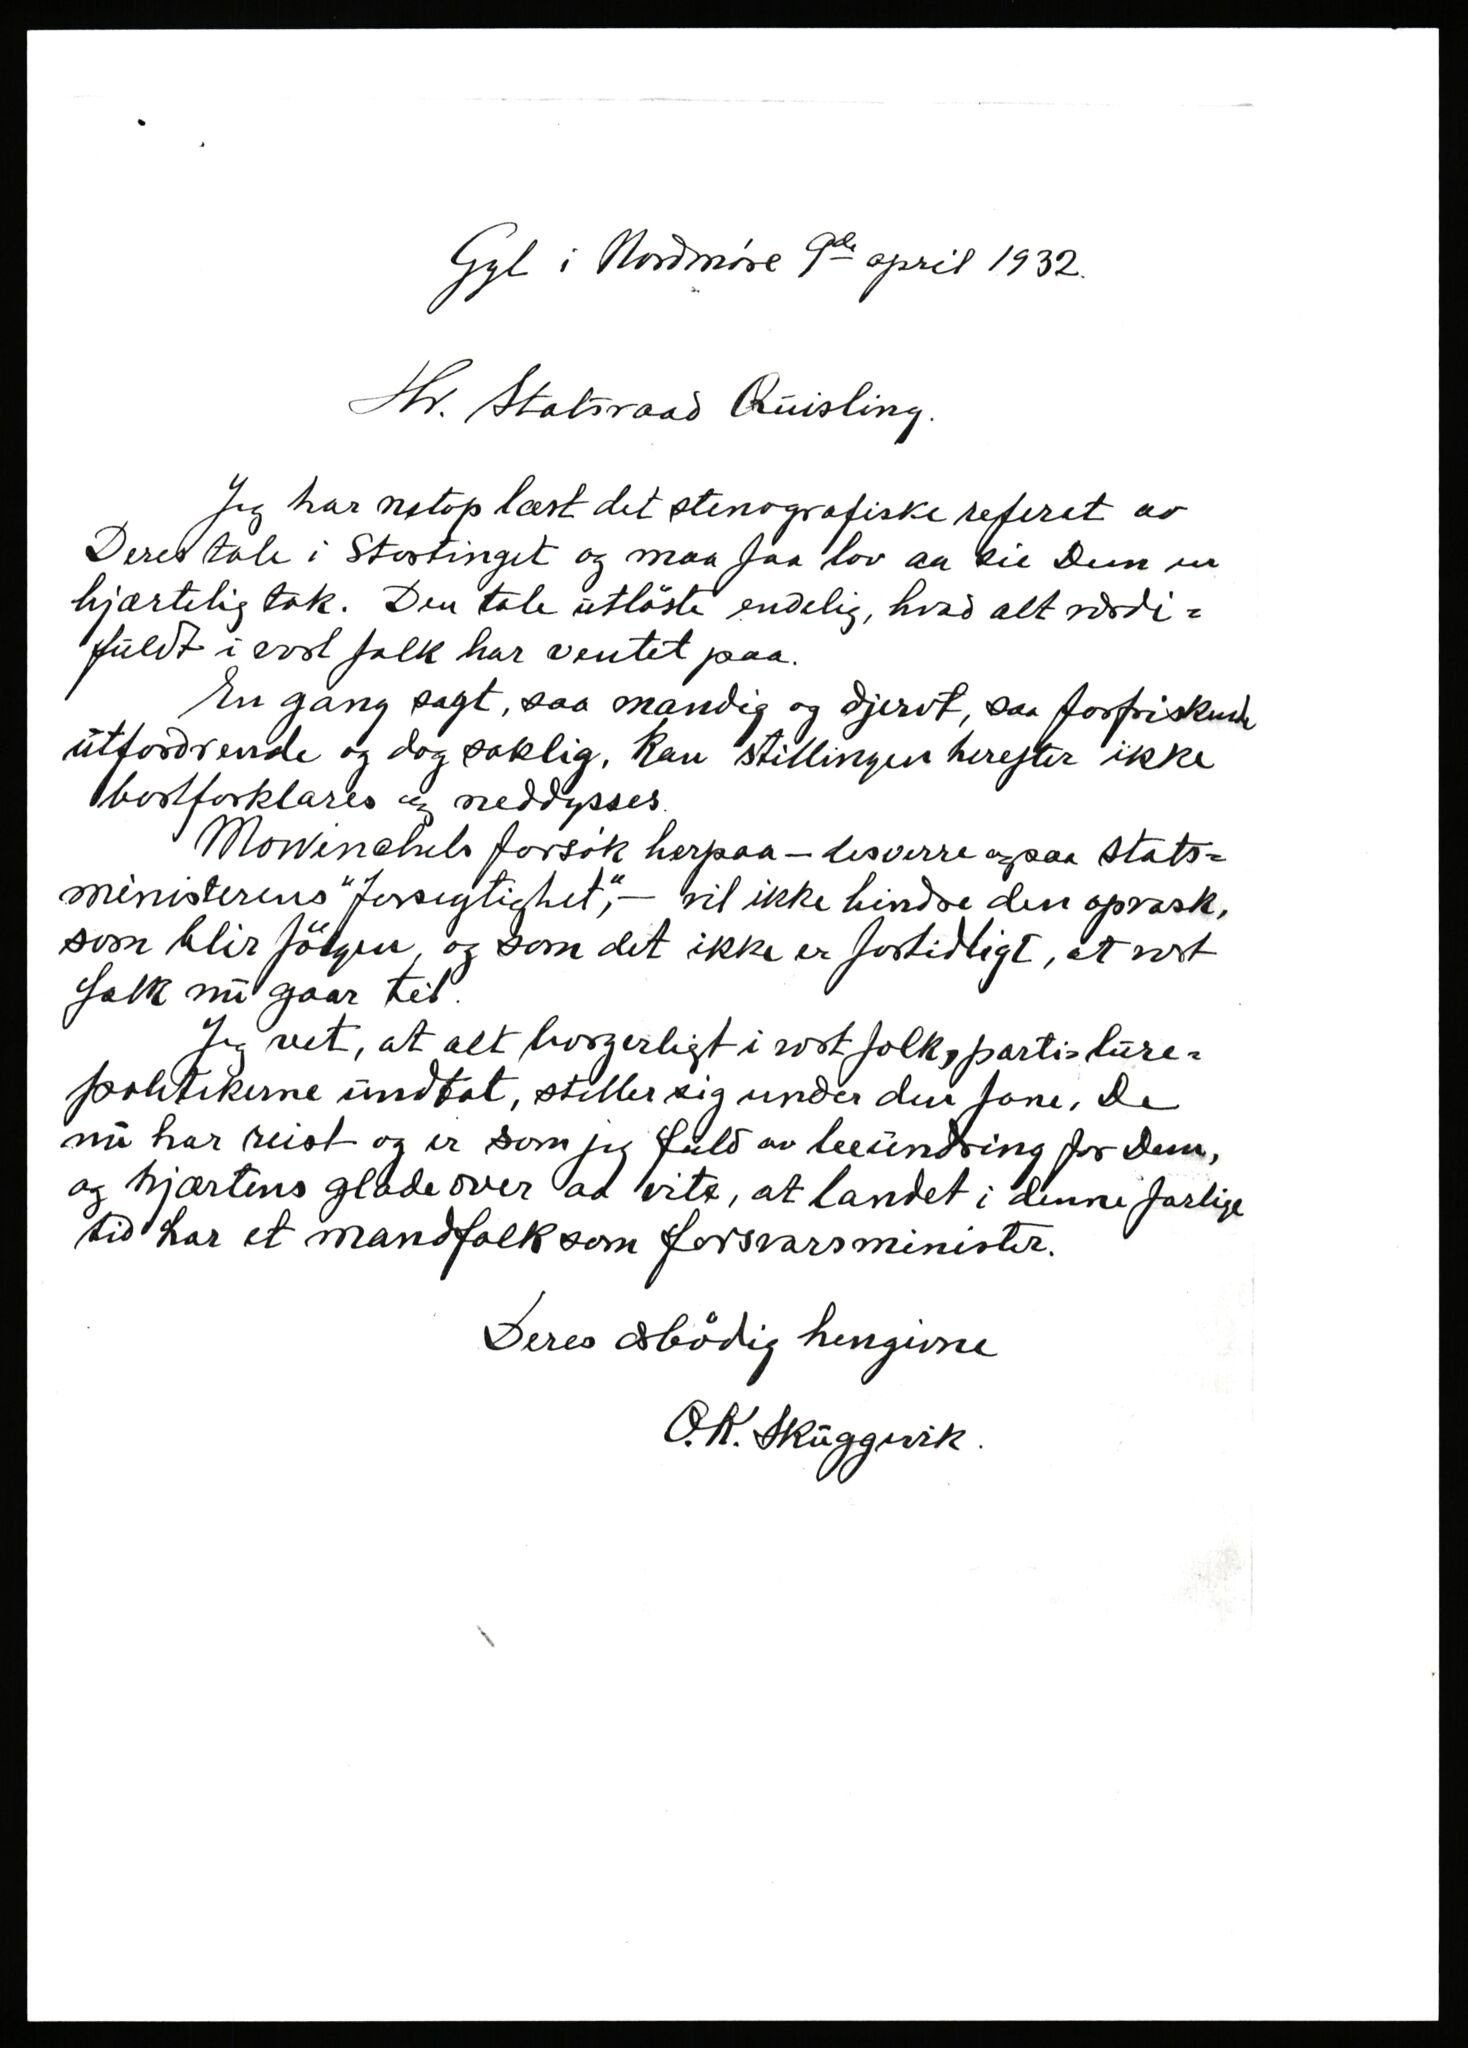 Gyl i Nordmöre 9de april 1932.
Hr. Statsraad Quisling.
Jeg har netop læst det stenografiske referet av
Deres tale i Stortinget og maa faa lov aa sie Dem en
hjærtelig tak. Den tale utlöste endelig, hvad alt værdi=
fuldt i vort folk har ventet paa.
En gang sagt, saa mandig og djervt, saa forfriskende
utfordrende og dog saklig, kan stillingen herefter ikke
bortforklares og neddysses.
Mowinckels forsök herpaa – desverre ogsaa stats=
ministerens "forsegtighet", – vil ikke hindre den opvask,
som blir fölgen, og som det ikke er fortidligt, at vort
folk nu gaar til.
Jeg vet, at alt borgerligt i vort folk, parti=lure=
politikerne undtat, stiller sig under den fane, De
nu har reist og er som jeg fuld av beundring for Dem,
og hjærtens glade over aa vite, at landet i denne farlige
tid har et mandfolk som forsvarsminister.
Deres ærbödig hengivne
O.K. Skuggevik.